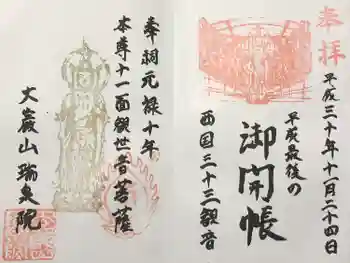 奉拝
平成三十年十一月二十四日
平成最後の
御開帳
西国三十三観音
奉祠元禄十年
本尊十一面観世音菩薩
大巌山瑞泉院